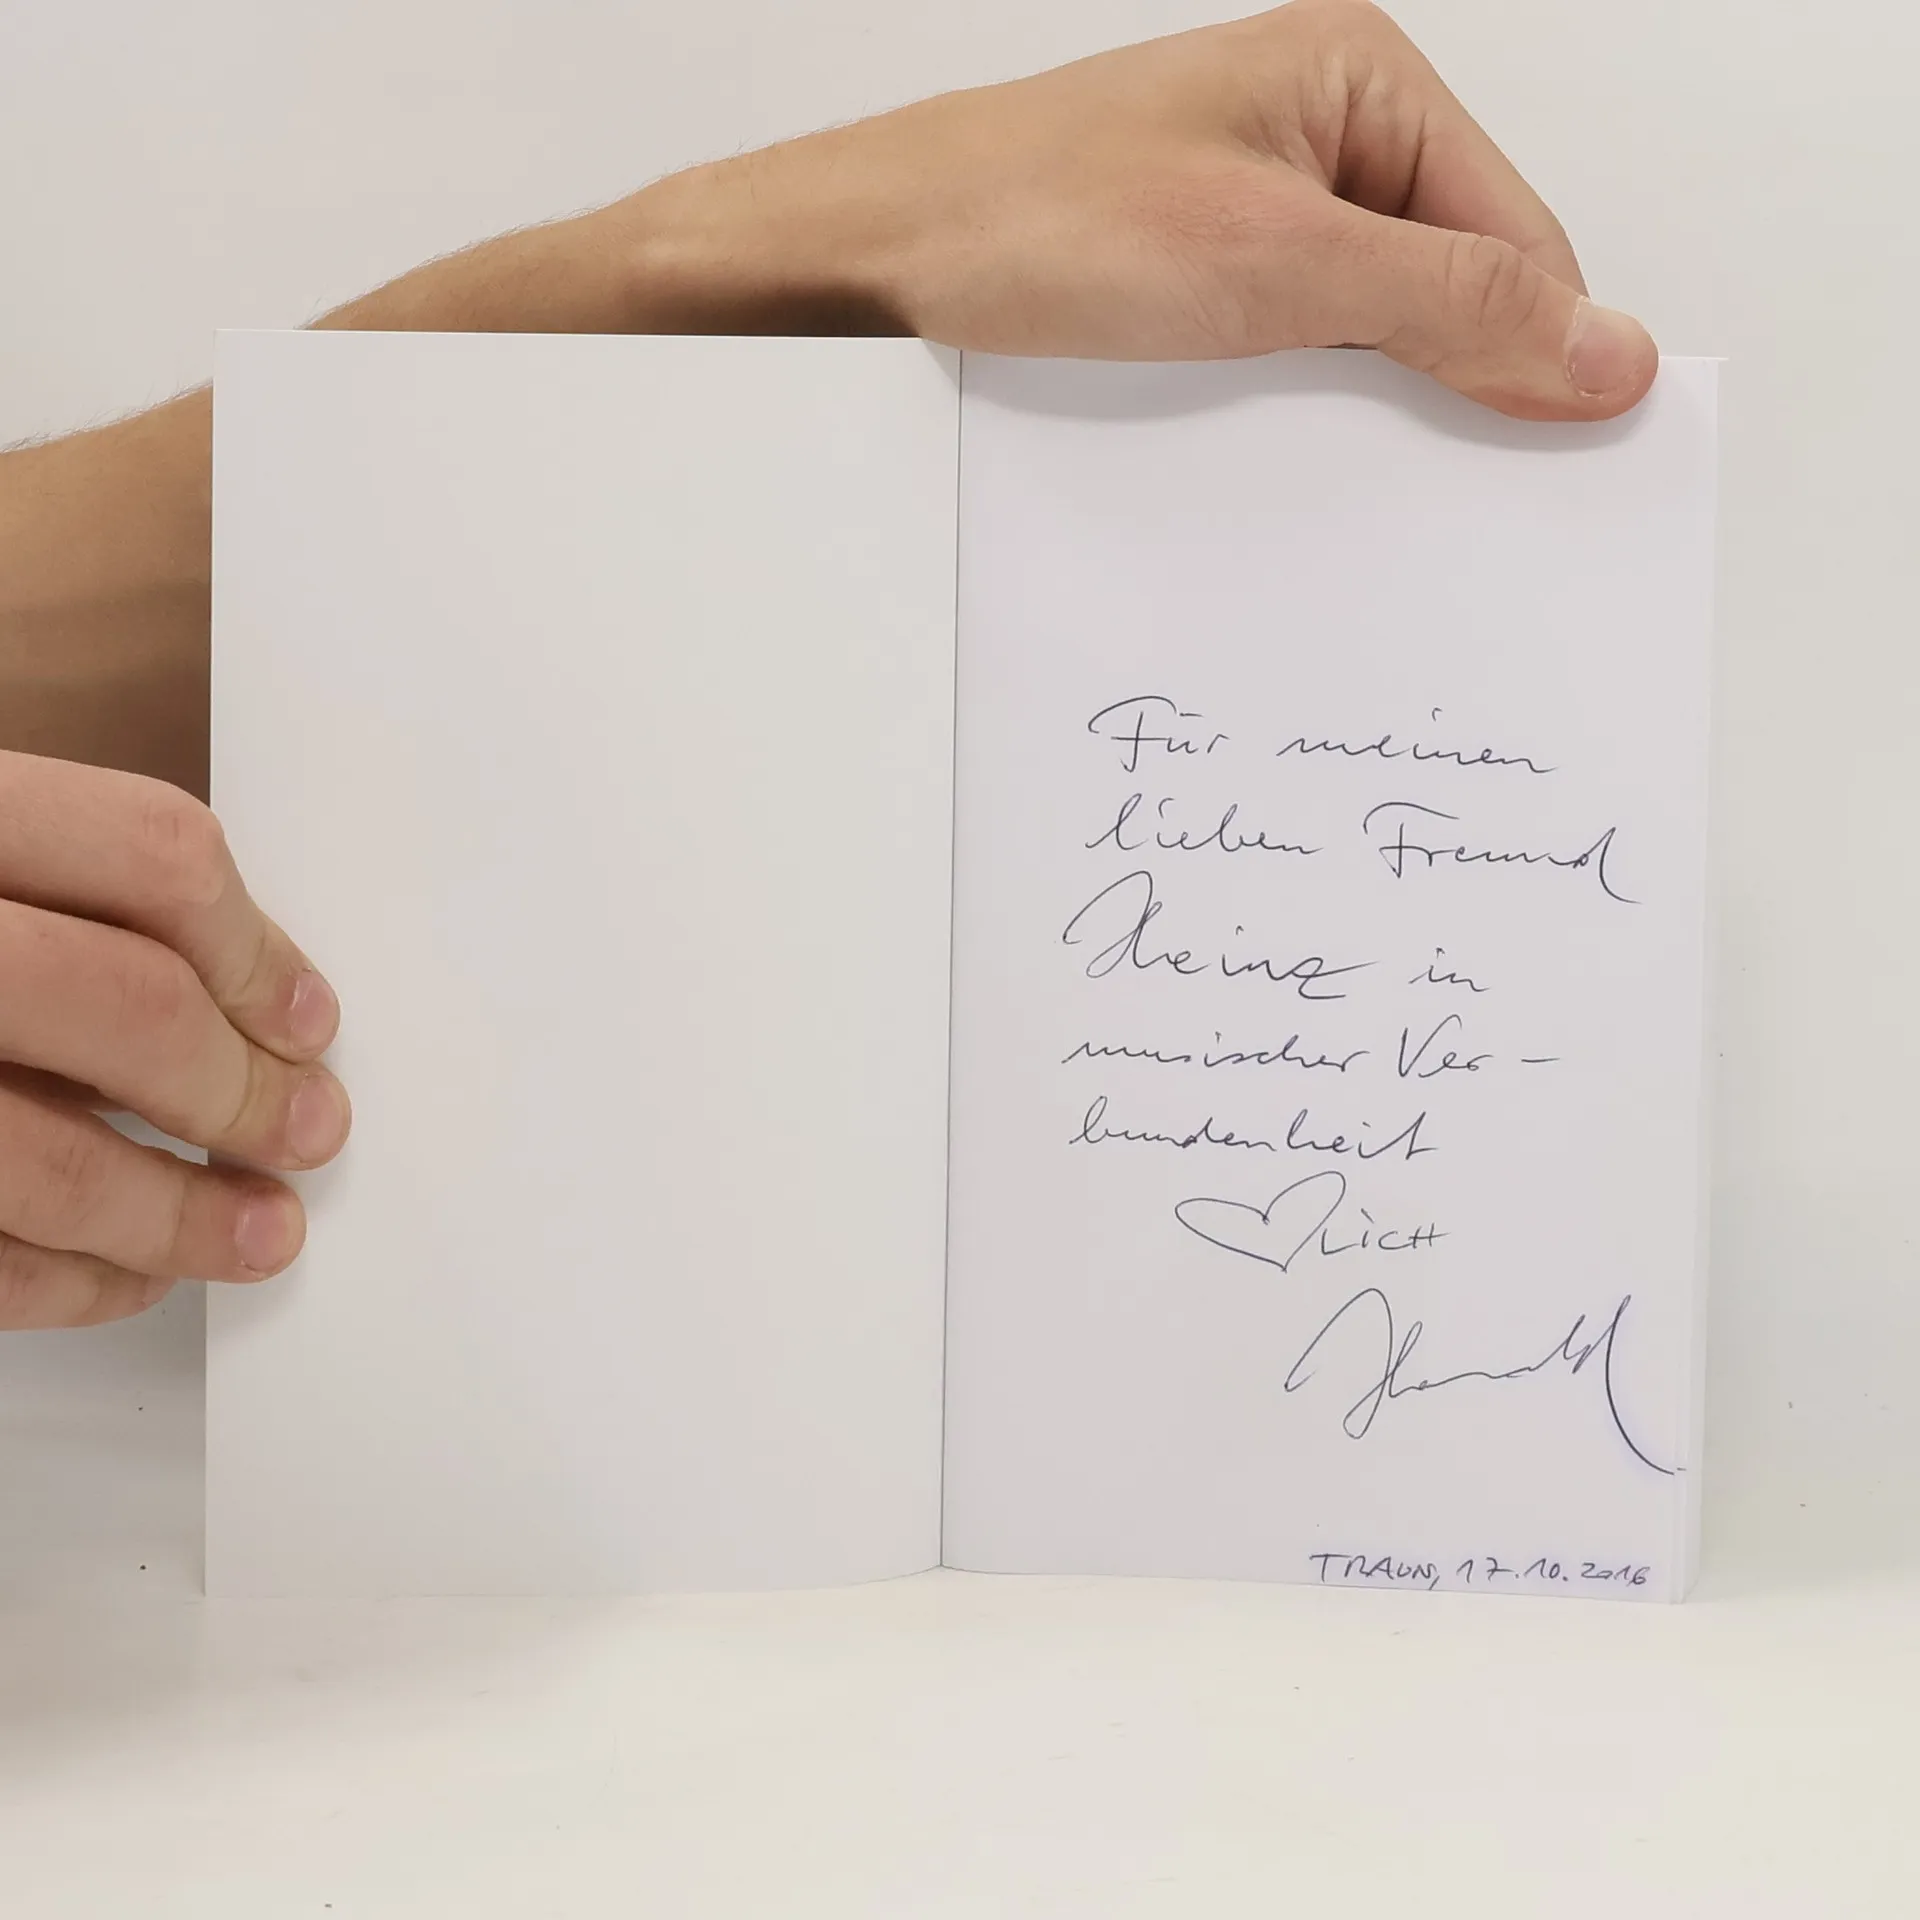 Für meinen
lieben Freund
Heinz in
musischer Ver-
bundenheit
♡LICH
Harald
TRAUN, 17.10.2016